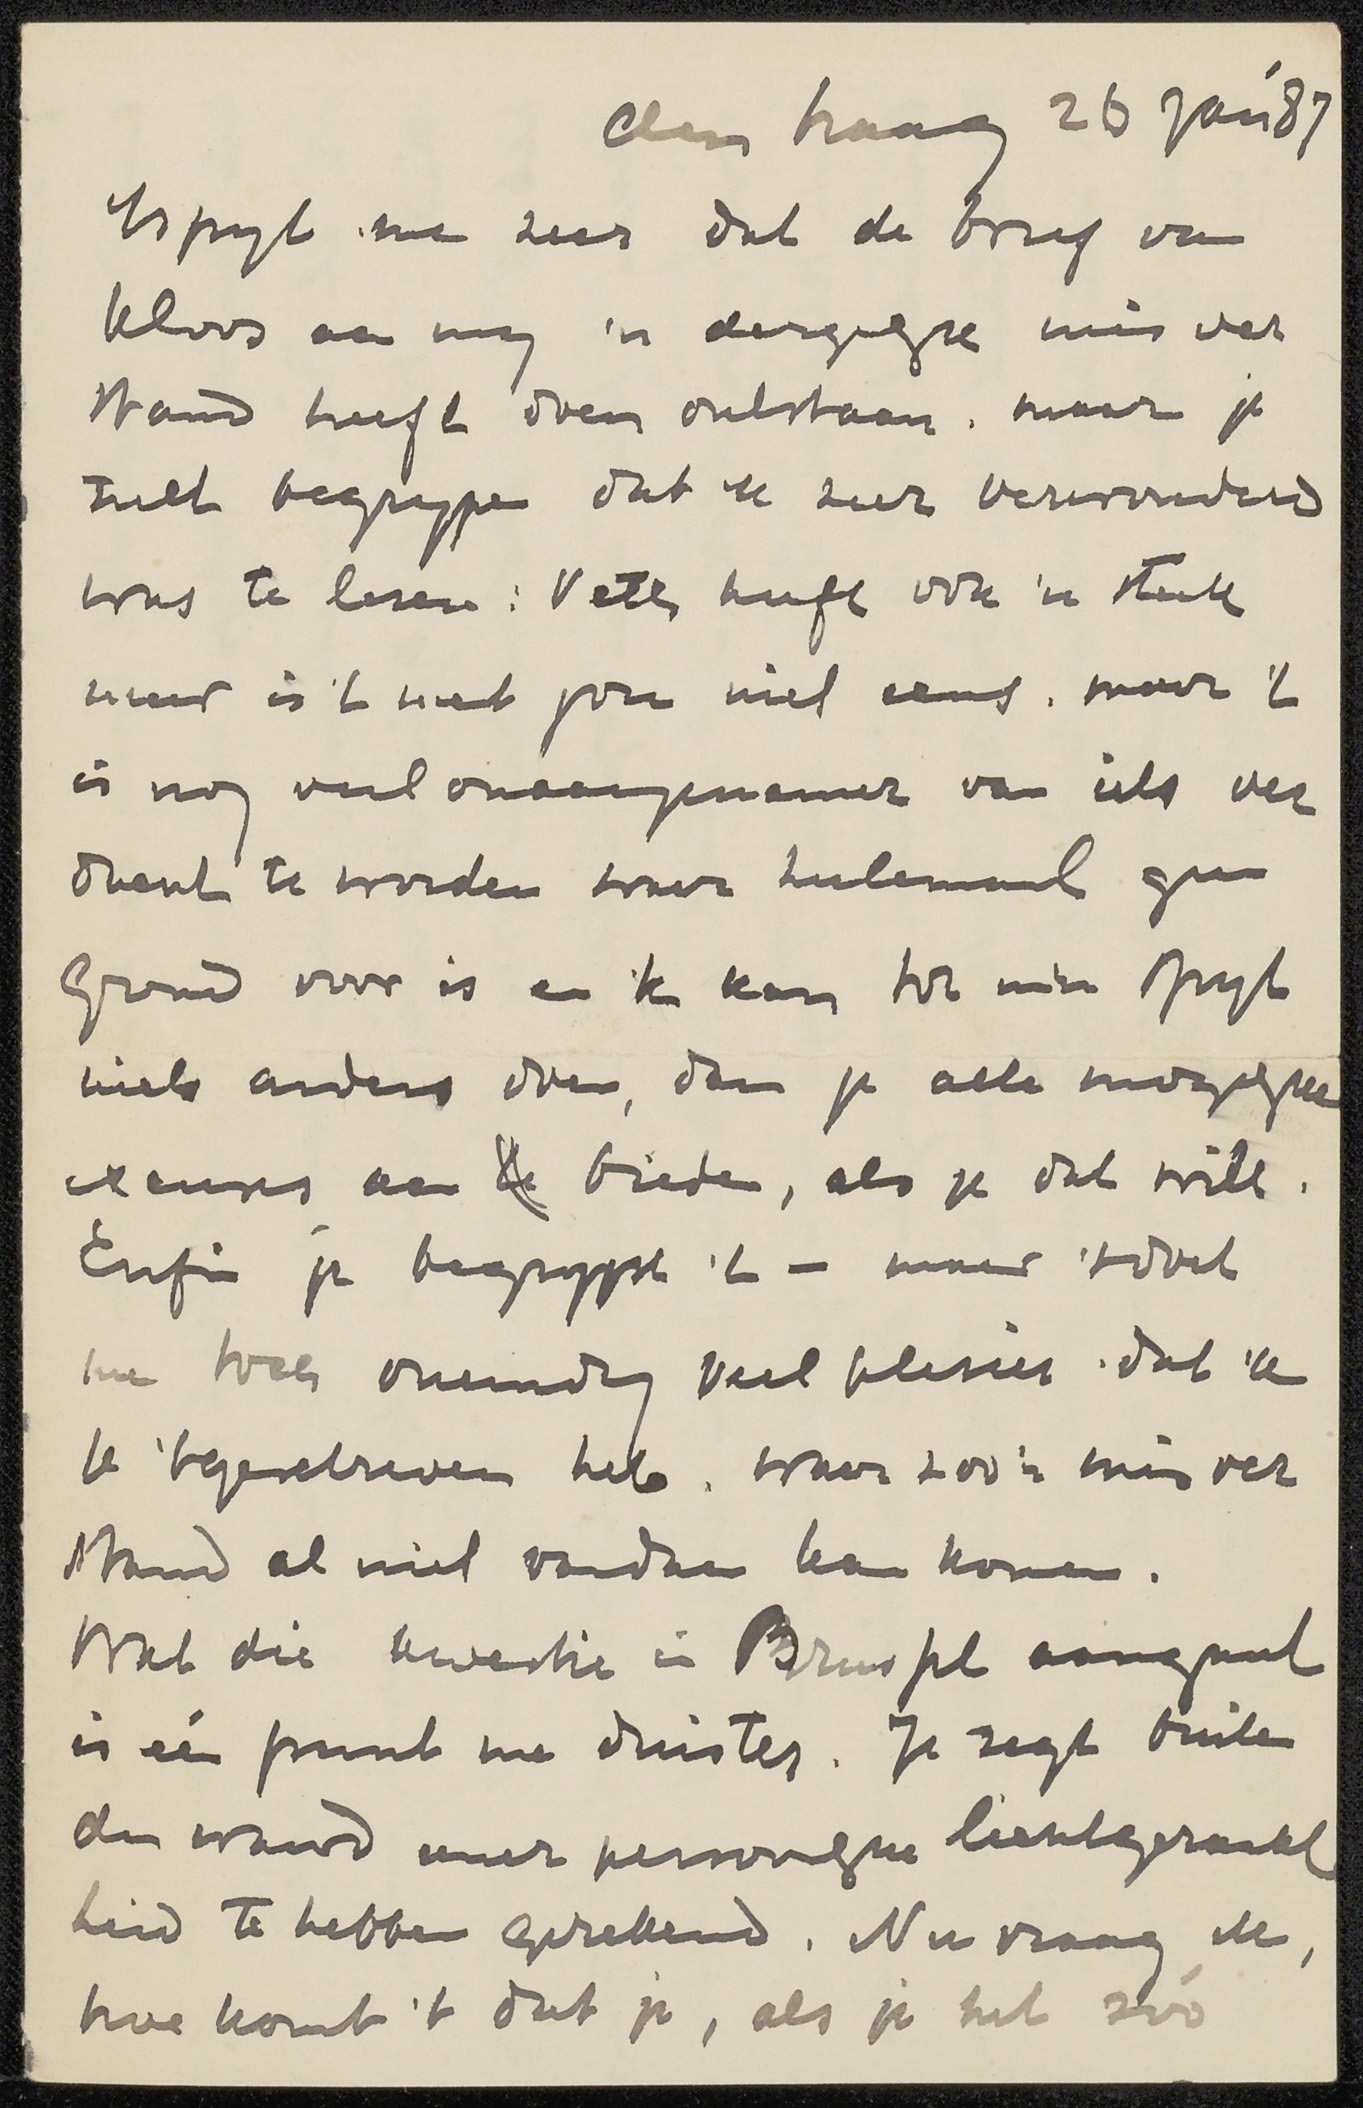 den haag 26 Jan '87
't Spyt me zeer dat de brief van
Kloos aan my 'n dergelyk mis ver
stand heeft doen ontstaan. maar je
zult begrypen dat ik zeer verwonderd
was te lezen: Veth heeft ook 'n stuk
maar is 't met jou niet eens. maar 't
is nog veel onaangenamer van iets ver
dacht te worden waar heelemaal geen
Grond voor is en 'k kan tot min spyt
niets anders doen, dan je alle mogelyke
excuses aan te bieden, als je dat wilt.
Enfin je begrypt 't – maar 't doet
me toch oneindig veel plesier dat 'k
je 't geschreven heb. waar zoo'n mis ver
stand al niet vandaan kan komen.
Wat die kwestie in Brussel aangaat
is één punt me duister. Je zegt buiten
den waard uwer persoonlyke lichtgeraakt
heid te hebben gerekend. Nu vraag ik,
hoe komt 't dat je, als je het zóó